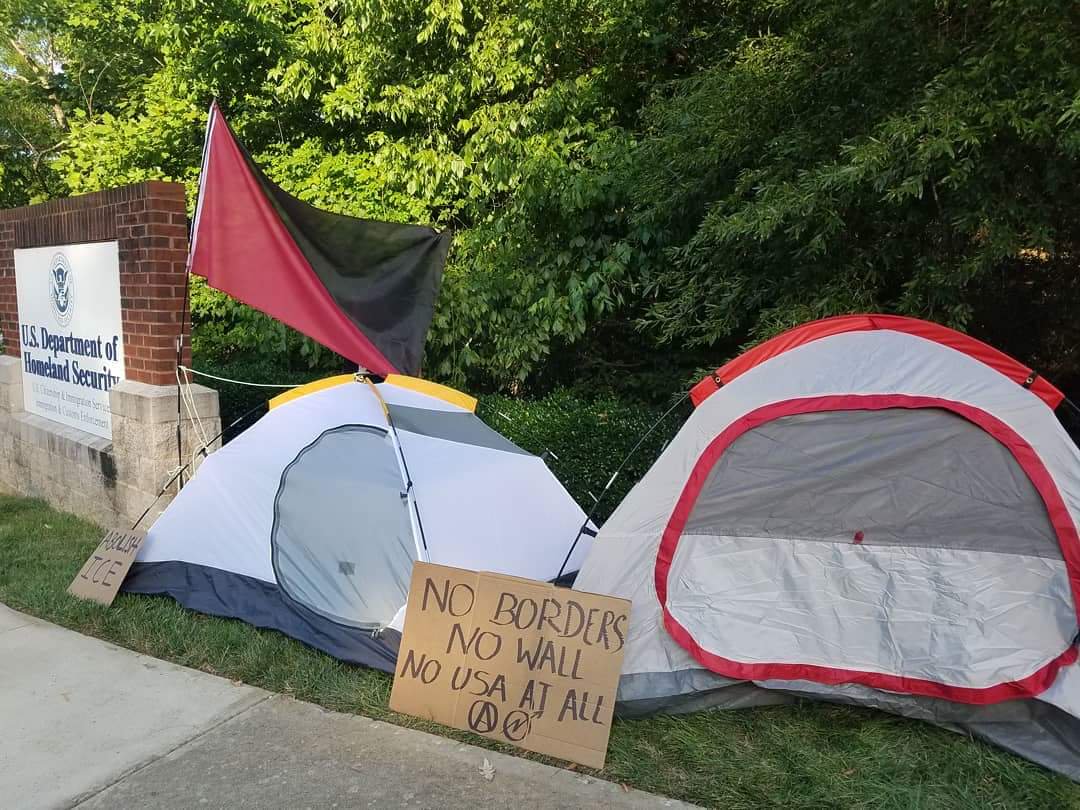 U.S. Department of
Homeland Security
U.S. Citizenship & Immigration Services
Immigration & Customs Enforcement
ABOLISH
ICE
NO BORDERS
NO WALL
NO USA AT ALL